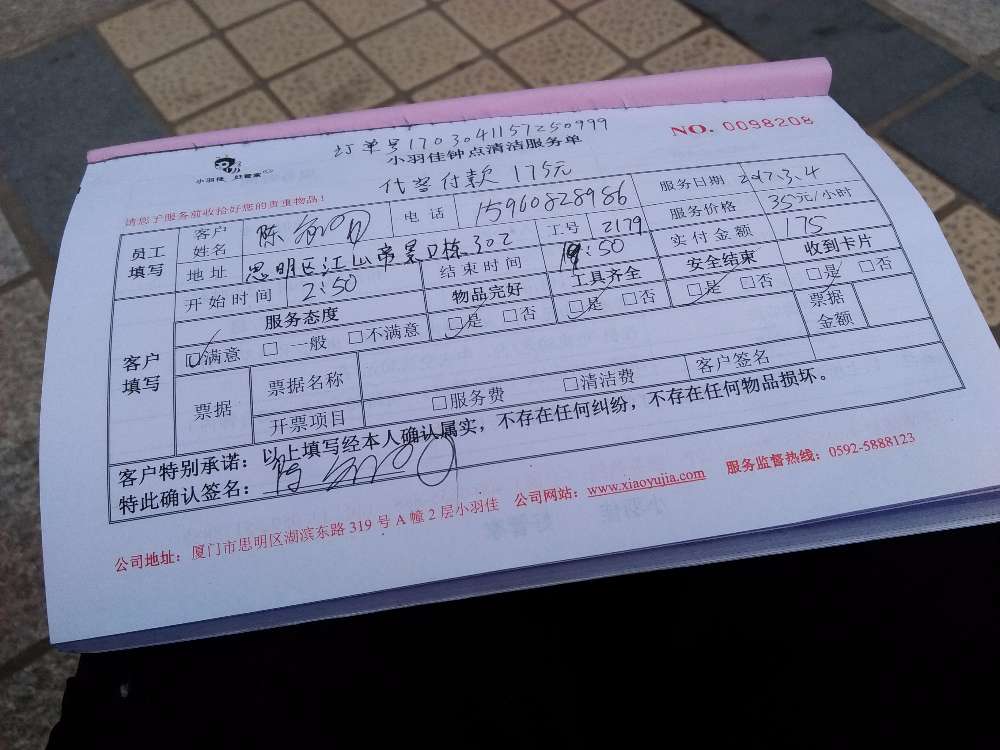 订单号1703041157250999
NO. 0098208
小羽佳 好管家
小羽佳钟点清洁服务单
代客付款 175元
请您于服务前收拾好您的贵重物品!
员工填写 客户姓名 陈 电话 15960828986 服务日期 2017.3.4
地址 思明区江山帝景D栋302 工号 2179 服务价格 35元/小时
开始时间 2:50 结束时间 :50 实付金额 175
客户填写 服务态度 物品完好 工具齐全 安全结束 收到卡片
□满意 □一般 □不满意 □是 □否 □是 □否 □是 □否 □是 □否
票据 票据名称 票据金额
开票项目 □服务费 □清洁费 客户签名
客户特别承诺:以上填写经本人确认属实,不存在任何纠纷,不存在任何物品损坏。
特此确认签名:陈
公司地址:厦门市思明区湖滨东路319号A幢2层小羽佳 公司网站:www.xiaoyujia.com 服务监督热线:0592-5888123